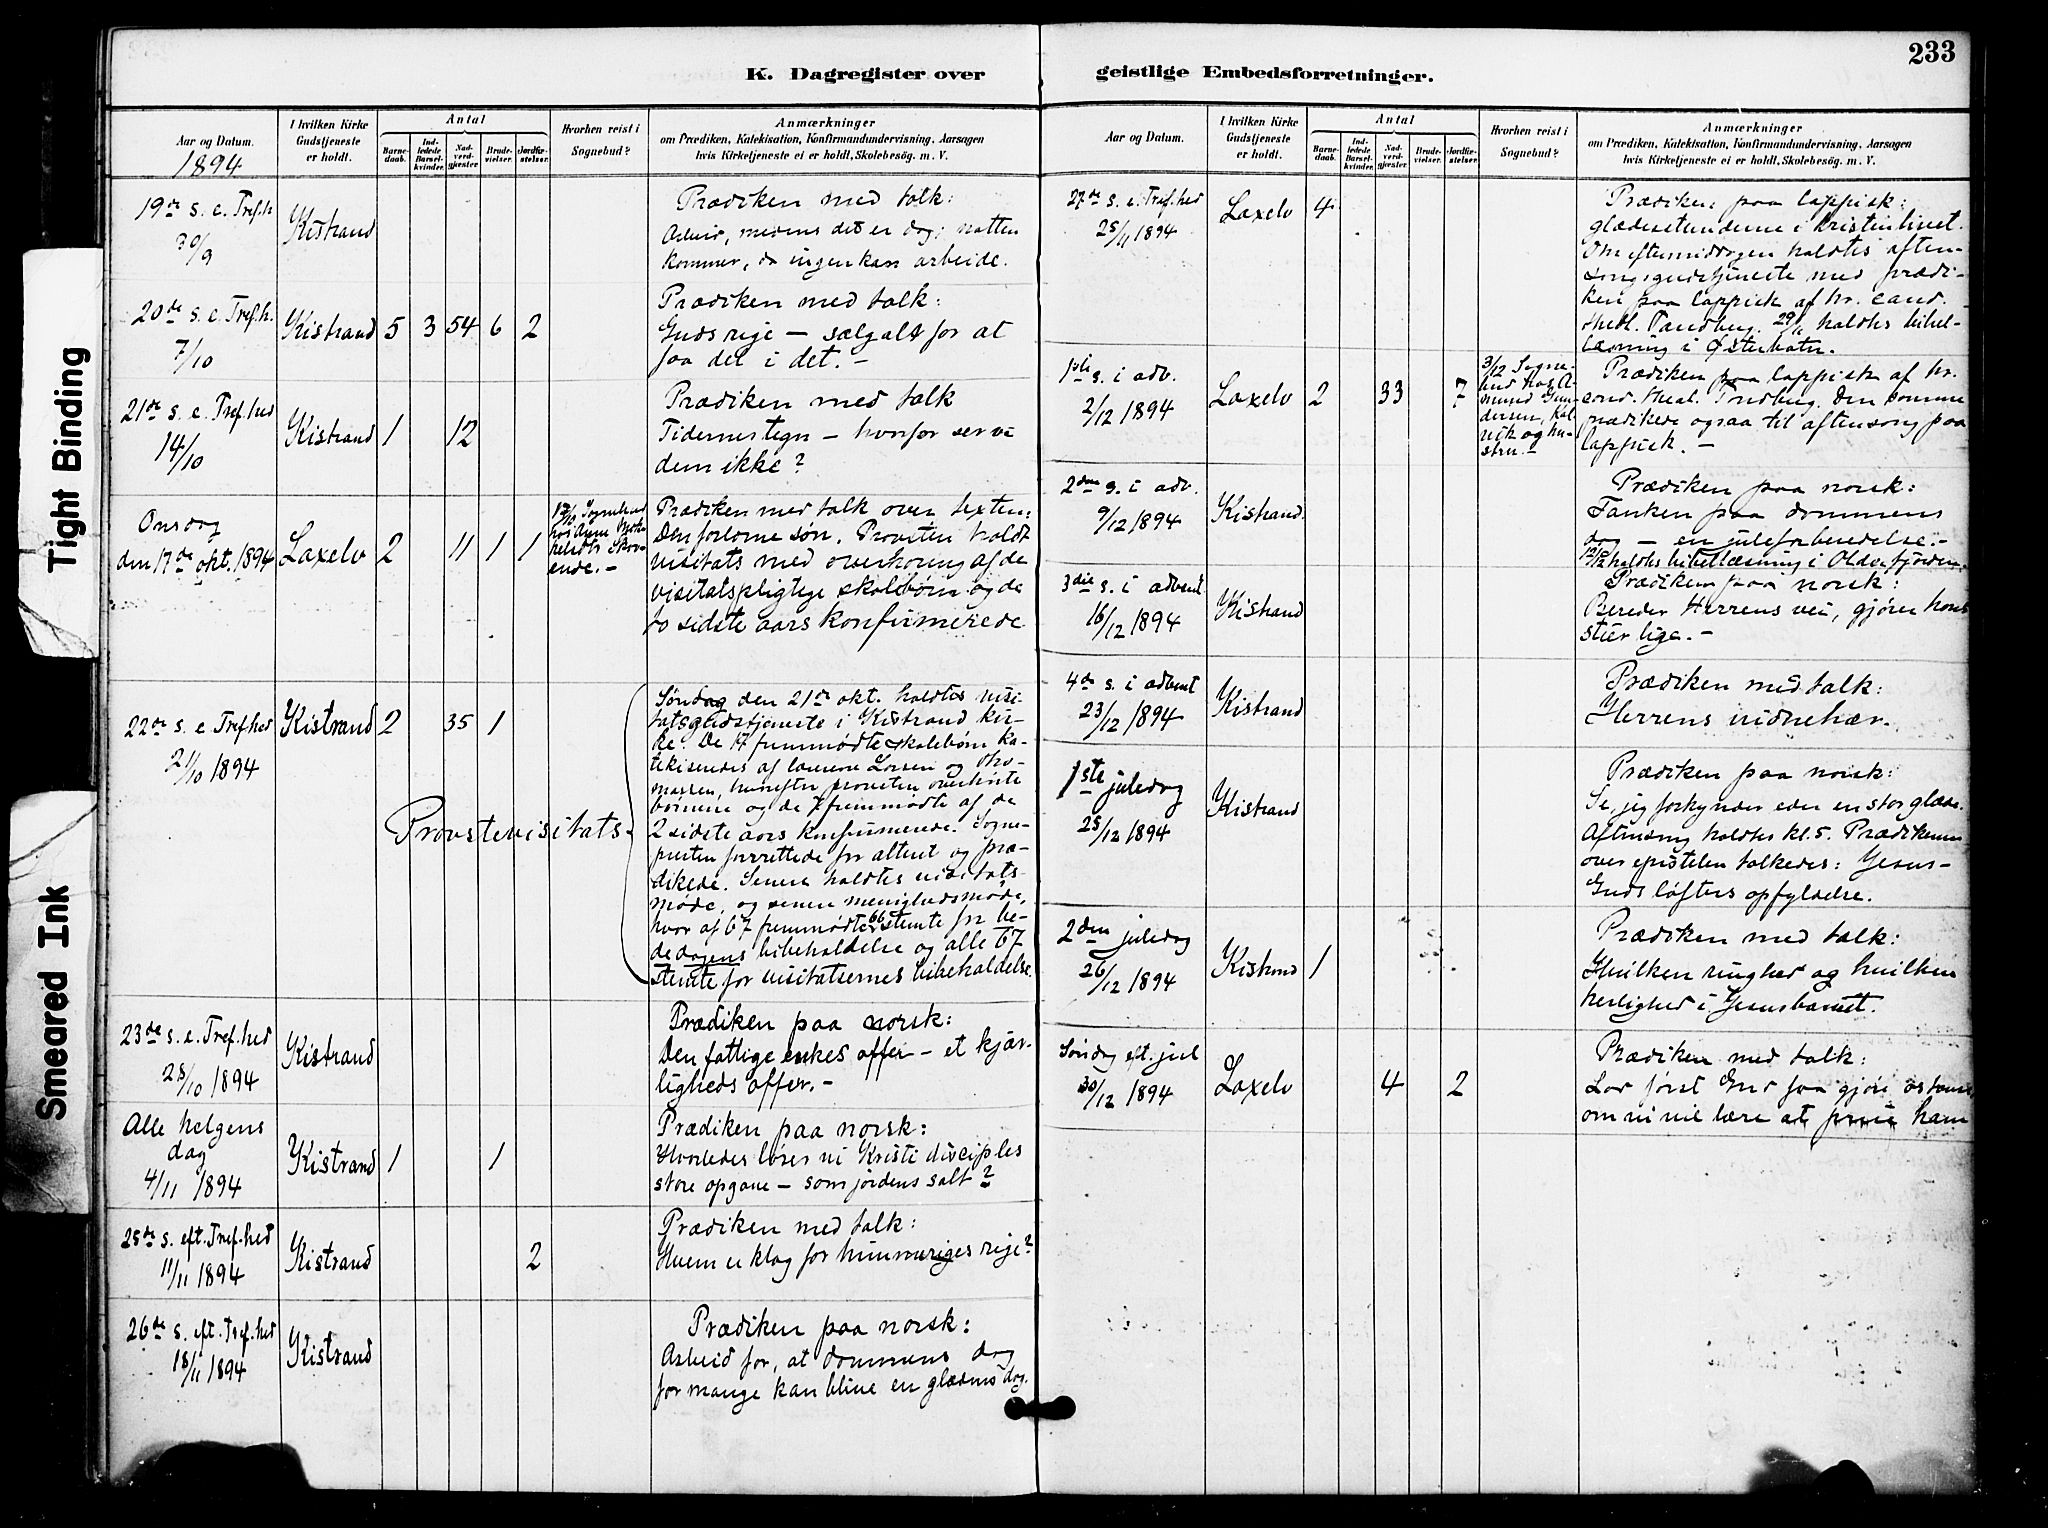 233
K. Dagregister over
geistlige Embedsforretninger.
Aar og Datum.
1894
I hvilken Kirke Gudstjeneste er holdt.
Antal
Barnedaab.
Indledede Barselkvinder.
Nadverdgjæster.
Brudevielser.
Jordfæstelser.
Hvorhen reist i Sognebud?
Anmærkninger
om Prædiken, Katekisation, Konfirmandundervisning, Aarsagen
hvis Kirketjeneste ei er holdt, Skolebesøg. m. V.
19de s. e. Tref.h
30/9
Kistrand
Prædiken med tolk:
Arbeid, medens det er dag; natten
kommer, da ingen kan arbeide.
20de s. e. Tref.h.
7/10
Kistrand 5 3 54 6 2
Prædiken med tolk:
Guds rige — sælg alt for at
faa del i det. –
21de s. e. Tref.hed
14/10
Kistrand 1 12
Prædiken med tolk
Tidernes tegn – hvorfor ser vi
dem ikke?
Onsdag
den 17de okt. 1894
Laxelv 2 11 1 1
Sognebud
hos Anne
ende. –
Prædiken med tolk over texten:
Den forlorne søn. Provsten holdt
visitats med overhøring af de
visitatspligtige skolebørn og de
to sidste aars konfirmerede
22de s. e. Tref.hed
21/10 1894
Kistrand 2 35 1
Provstevisitats
Søndag den 21de okt. holdtes visi-
tatsgudstjeneste i Kistrand kir-
ke. De 17 fremmødte skolebørn ka-
tekiseredes af lærerne Larsen og Tho-
massen, hvorefter provsten overhørte
børnene og de 7 fremmødte af de
2 sidste aars konfirmerede. Sogne-
presten forrettede for alteret og præ-
dikede. Senere holdtes visitats-
møde, og senere menighedsmøde,
hvor af 67 fremmødte 66 stemte for be-
dedagens bibeholdelse og alle 67
stemte for visitatsernes bibeholdelse.
23de s. e. Tref.hed
28/10 1894
Kistrand
Prædiken paa norsk:
Den fattige enkes offer – et kjær-
ligheds offer. –
Alle helgens
dag
4/11 1894
Kistrand 1 1
Prædiken paa norsk:
Hvorledes løser vi Kristi disciples
store opgave – som jordens salt?
25de s. eft. Tref.hed
11/11 1894
Kistrand 2
Prædiken med tolk:
Hvem er klog for himmeriges rige?
26de s. eft. Tref.hed
18/11 1894
Kistrand
Prædiken paa norsk:
Arbeid for, at dommens dag
for mange kan blive en glædens dag.
Aar og Datum.
I hvilken Kirke Gudstjeneste er holdt.
Antal
Barnedaab.
Indledede Barselkvinder.
Nadverdgjæster.
Brudevielser.
Jordfæstelser.
Hvorhen reist i Sognebud?
Anmærkninger
om Prædiken, Katekisation, Konfirmandundervisning, Aarsagen
hvis Kirketjeneste ei er holdt, Skolebesøg. m. V.
27de s. e. Tref.hed
25/11 1894
Laxelv 4
Prædiken paa lappisk:
glædesstunderne i kristenlivet.
Om eftermiddagen holdtes aften-
songsgudstjeneste med prædi-
ken paa lappisk af hr. cand.
theol. Tandberg. 29/11 holdtes bibel-
læsning i Østerbotn.
1ste s. i adv.
2/12 1894
Laxelv 2 33 7
3/12 Sogne-
bud hos A-
mund Gun-
dersen, Kol-
vik og hu-
stru. –
Prædiken paa lappisk af hr.
cand. theol. Tandberg. Den samme
prædikede ogsaa til aftensong paa
lappisk. –
2den s. i adv.
9/12 1894
Kistrand.
Prædiken paa norsk:
Tanken paa dommens
dag – en juleforberedelse. –
12/12 holdtes bibellæsning i Olderfjorden.
3die s. i advent
16/12 1894
Kistrand
Prædiken paa norsk:
Bereder Herrens vei, gjører hans
stier lige. –
4de s. i advent
23/12 1894
Kistrand
Prædiken med tolk:
Herrens vidnehær.
1ste juledag
25/12 1894
Kistrand
Prædiken paa norsk:
Se, jeg forkynder eder en stor glæde.
Aftensang holdtes kl. 5. Prædikenen
over epistelen tolkedes: Jesus –
Guds løfters opfyldelse.
2den juledag
26/12 1894
Kistrand 1
Prædiken med tolk:
Hvilken ringhed og hvilken
herlighed i Jesusbarnet.
Søndag eft. jul
30/12 1894
Laxelv 4 2
Prædiken med tolk:
Lad først Gud faa gjøre os tomme
om vi vil lære at prise ham
Tight Binding
Smeared Ink